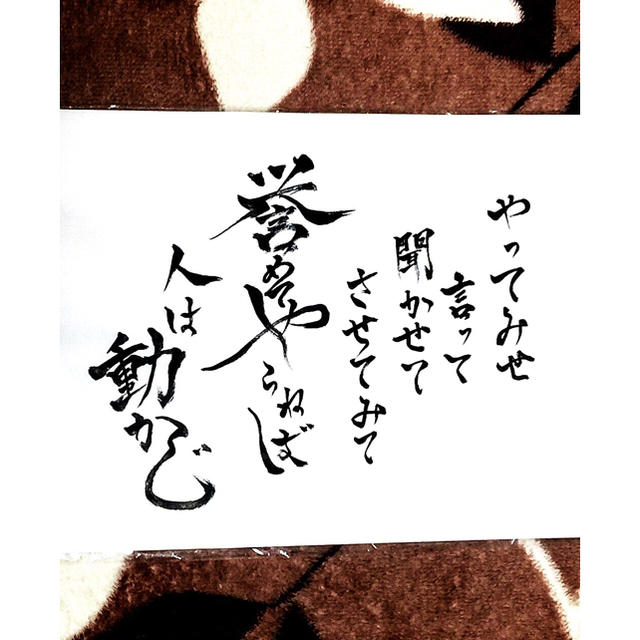 やってみせ
言って
聞かせて
させてみて
誉めてやらねば
人は動かじ